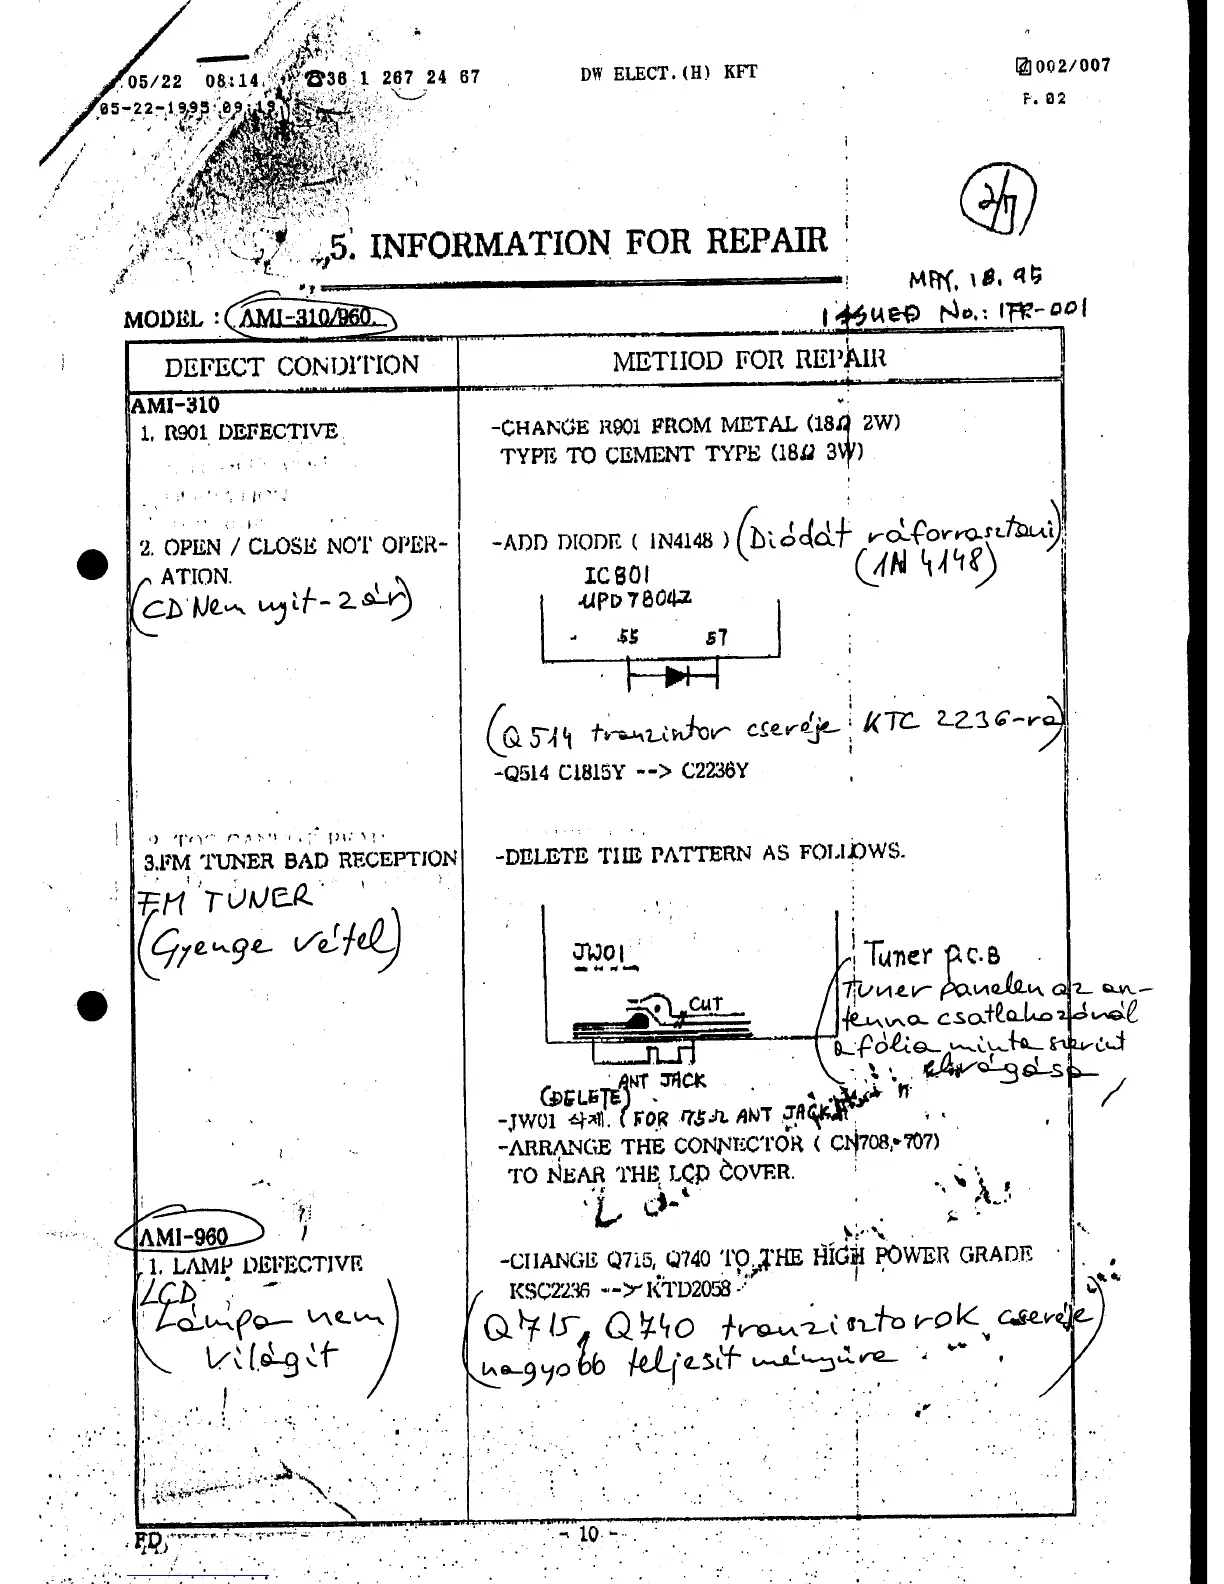 05/22 08:14 ☎36 1 267 24 67 DW ELECT.(H) KFT 002/007
05-22-1995 09:19 P.02
2/7
5. INFORMATION FOR REPAIR
MAY. 18. 95
MODEL : AMI-310/960. ISSUED No.: ITR-001
DEFECT CONDITION METHOD FOR REPAIR
AMI-310
1. R901 DEFECTIVE -CHANGE R901 FROM METAL (18Ω 2W)
TYPE TO CEMENT TYPE (18Ω 3W)
2. OPEN / CLOSE NOT OPER- -ADD DIODE ( 1N4148 ) (Diódát ráforrasztani)
ATION. (1N 4148)
(CD Nem nyit-zár)
IC801
μPD78042
55 57
(Q 514 tranzisztor cseréje KTC 2236-ra)
-Q514 C1815Y --> C2236Y
3.FM TUNER BAD RECEPTION -DELETE THE PATTERN AS FOLLOWS.
FM TUNER
(Gyenge vétel)
JW01
CUT
ANT JACK
Tuner P.C.B
Tuner panelen az an-
tenna csatlakozónál
a fólia minta szerint
elvágása
(DELETE)
-JW01 삭제. (FOR 75Ω ANT JACK
-ARRANGE THE CONNECTOR ( CN708, 707)
TO NEAR THE LCD COVER.
AMI-960
1. LAMP DEFECTIVE -CHANGE Q715, Q740 TO THE HIGH POWER GRADE
KSC2236 --> KTD2058
LCD
Lámpa nem
világít
(Q715, Q740 tranzisztorok cseréje
nagyobb teljesítményűre)
- 10 -